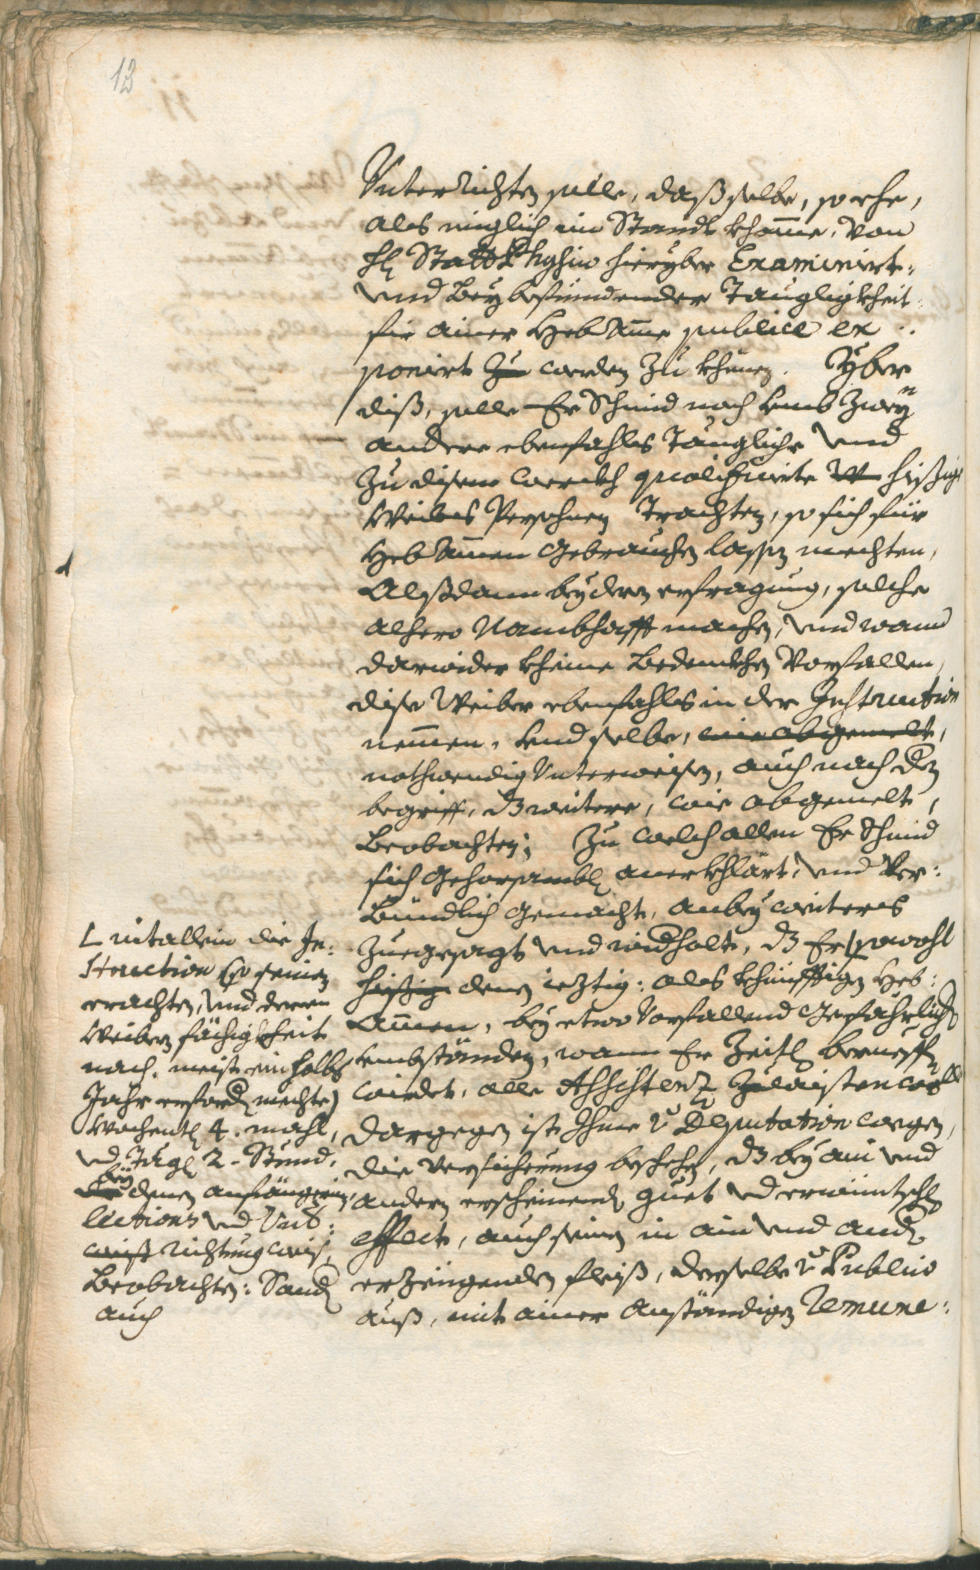 13
Unterrichten solle, daß selbe, so ehe,
als miglich im Standt khomme, von
H: Statt Phisico hieryber Examinirt,
und bey befundender Tauglichkheit
fir ainer HebAmme publice ex:
ponirt zu werden zu khinen. Yber
diß, solle Er Schmid noch umb zwey
andere ebenfahls Taugliche und
zu disem werckh qualificirte hißige
Weibs Persohnen Trachten, so sich für
HebAmmen Gebrauchen lassen mechten,
Alßdann bey deren erfragung, solche
alhero Nambhafft machen, und wann
darwider kheine Bedenckhen Vorfallen,
dise Weiber ebenfahls in der Instruction
nemmen, und selbe, wie abgemelt,
nothwendig Unterweisen, auch nach den
begriff, dz weitere, wie abgemelt,
Beobachten; Zu welch allen Er Schmid
sich Gehorsambl: anerkhlärt, und Ver:
Bündlich Gemacht, anbey weiters
zuegesagt und widholt, dz Er sowohl
hißige denen ieztig: als khünfftigen Heb:
Ammen, bey etwo Vorfallend Gefährlichen
umbständen, wann Er Zeitl: berueffen
wirdet, alle Assistenz zulaisten wolle
dargegen ist Ihme Deputation wegen,
die Versicherung beschehen, dz bey ain und
andern erscheinend guet und erwüntschl:
effect, auch seinen in ain und and:
erzeigenden fleiß, derselbe Publico
auß, mit ainer Anständigen Remune:
L nit allein die In:
struction (so seinen
erachten, und deren
Weiber fächigkheit
nach, meist ein halbs
Jahr erford: mechte)
Wochentl: 4. mahl,
und Tägl: 2 Stund,
bey denen anfängein
lections und Unt:
richtung
Beobachten: Sond:
auch